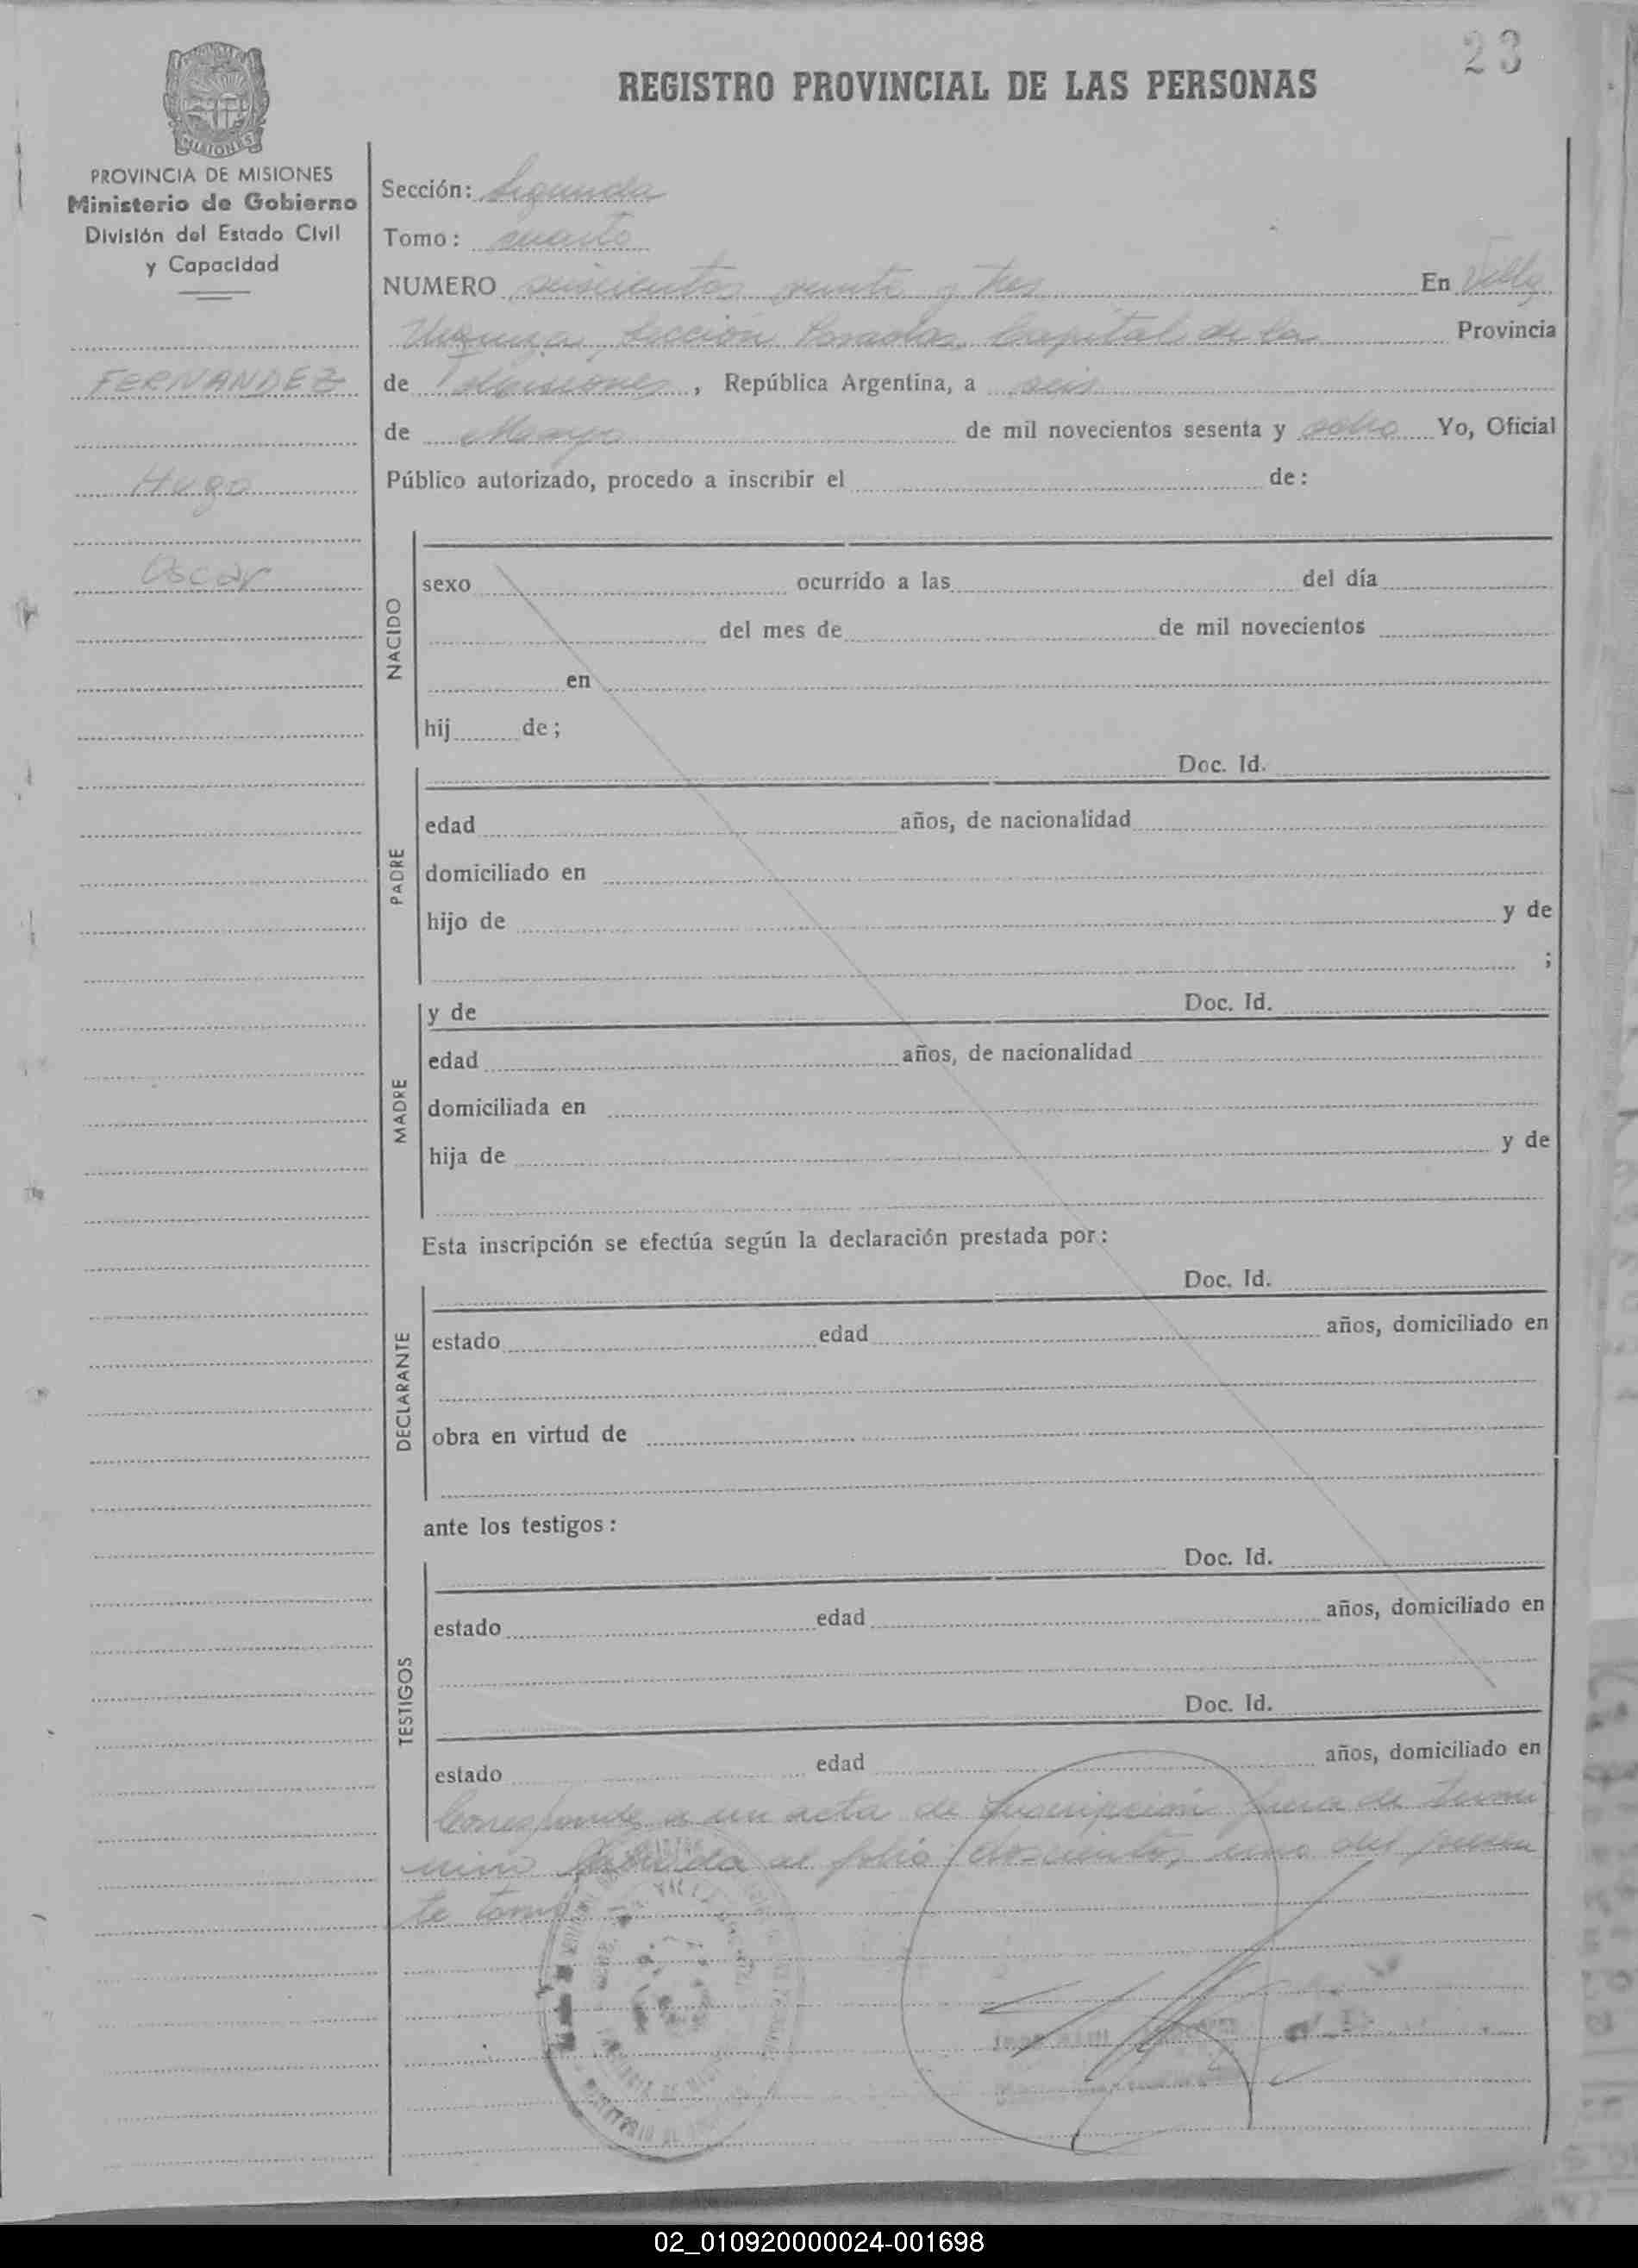 23
REGISTRO PROVINCIAL DE LAS PERSONAS
MISIONES
PROVINCIA DE MISIONES
Ministerio de Gobierno
División del Estado Civil
y Capacidad
FERNANDEZ
Hugo
Oscar
Sección: Segunda
Tomo: cuarto
NUMERO seiscientos veinte y tres En Villa
Urquiza, Sección Posadas, Capital de la Provincia
de Misiones, República Argentina, a seis
de Mayo de mil novecientos sesenta y ocho Yo, Oficial
Público autorizado, procedo a inscribir el de:
NACIDO
sexo ocurrido a las del día
del mes de de mil novecientos
en
hij de;
PADRE
Doc. Id.
edad años, de nacionalidad
domiciliado en
hijo de y de
;
MADRE
y de Doc. Id.
edad años, de nacionalidad
domiciliada en
hija de y de
Esta inscripción se efectúa según la declaración prestada por:
DECLARANTE
Doc. Id.
estado edad años, domiciliado en
obra en virtud de
ante los testigos:
TESTIGOS
Doc. Id.
estado edad años, domiciliado en
Doc. Id.
estado edad años, domiciliado en
Corresponde a un acta de inscripción fuera de termi
nino al folio doscientos uno del presen
te tomo
02_010920000024-001698